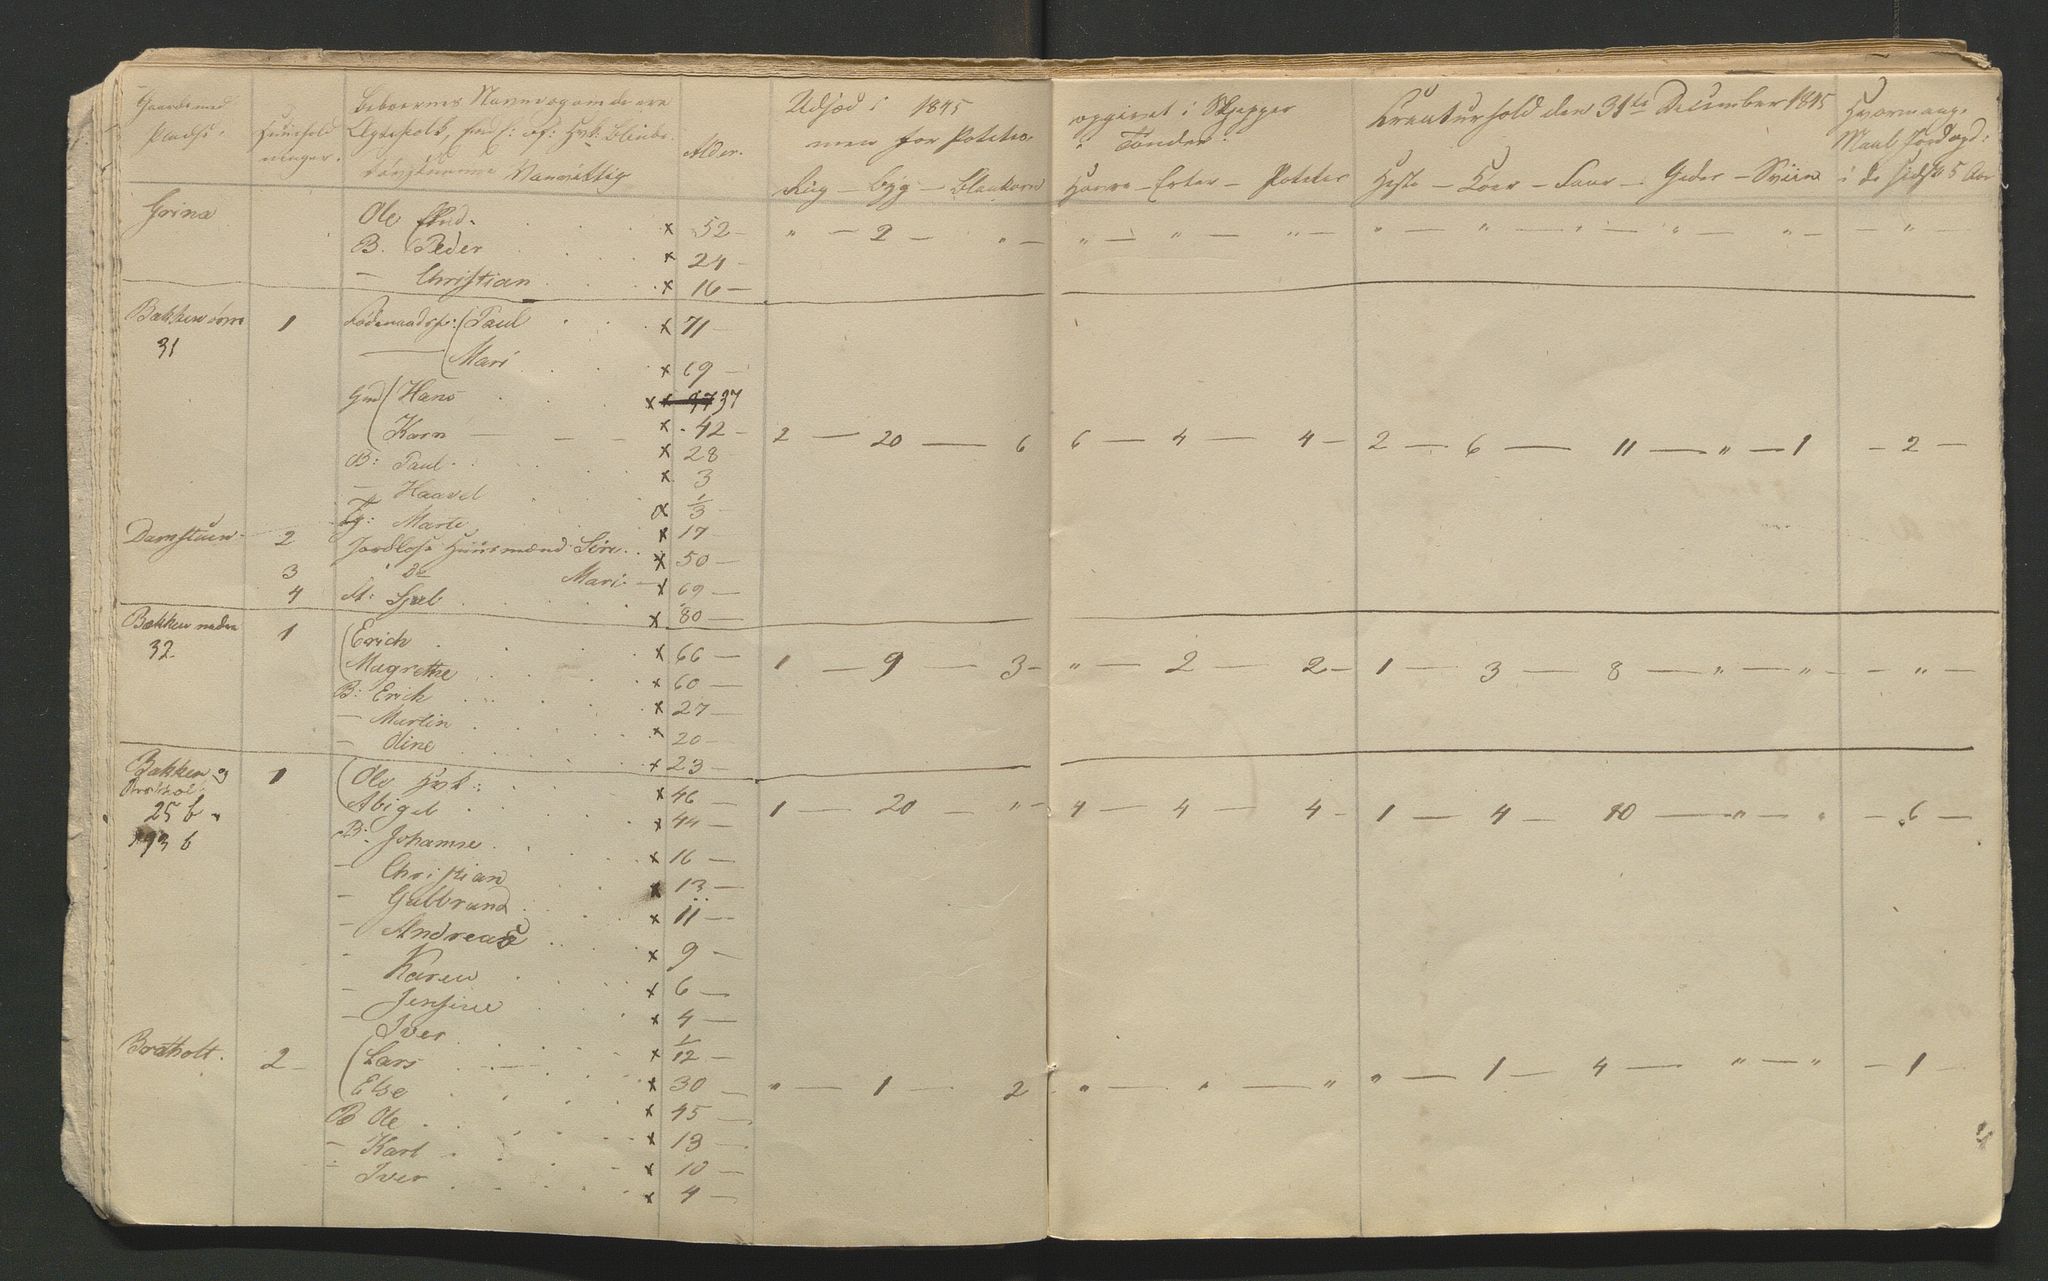 Gaardenes med Pladse. Huushold ninger. Beboernes Navne og om de ere Ægtefolk, Alder. Udsæd i 1845 opgivet i Skjepper Creaturhold den 31te December 1845 Hvormange
men for Poteter i Tønder Maal
Rug — Byg — Blankorn Havre — Erter — Poteter Heste — Køer — Faar — Geder — Sviin i de sidste 5 Aar
Vanvittig
Grina Ole x 52 — " — 2 — " — " — " — " — " — " — " — " — " — " —
B. Peder x 24 —
— Christian x 16 —
Bækken 1 Paul x 71
31
— Mari x 69 —
Gmd Hans x 37
Karn x 42 — 2 — 20 — 6 6 — 4 — 4 — 2 — 6 — 11 — " — 1 — 2 —
B: Paul x 28
— Haavel x 3
Marte 1/3
Damstuen 2 Jordløse Huusmænd Siri x 17
3 Do Mari x 50 —
4 x 69 —
x 80 —
Bækken nedre 1 Erich
32 Magrethe x 66 — 1 — 9 — 3 — " — 2 — 2 — 1 — 3 — 8 — " — " — " —
B: Erich x 60 —
— Martin x 27 —
— Oline x 20 —
x 23 —
Bækken og 1 Ole Hvk:
25 b Abigel x 46 — 1 — 20 — " — 4 — 4 — 4 — 1 — 4 — 10 — " — " — 6 —
193 b B: Johanne x 44 —
x 16 —
— Christian x 13 —
— Gulbrand x 11 —
— Andreas x 9 —
— Karen x 6 —
— Jensine x 4 —
— Iver x 1/12 —
Bratholt. 2 — Lars
Else x 30 — " — 1 — 2 — " — " — " " — 1 — 4 — " — " — 1 —
B Ole x 45 —
— Karl x 13 —
— Iver x 10 —
x 4 —